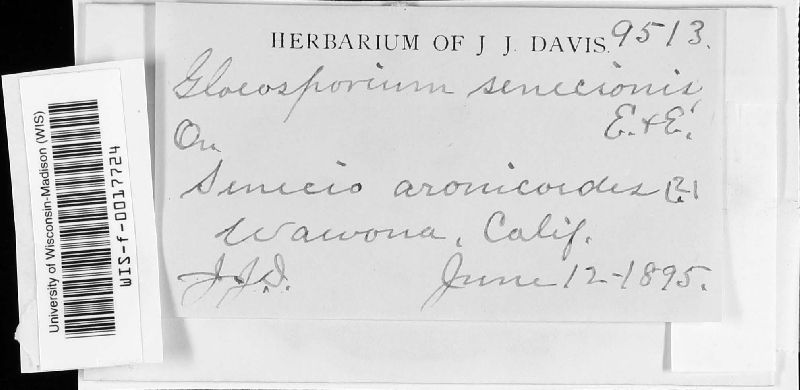 HERBARIUM OF J J. DAVIS. 9513.
Gloeosporium senecionis
E. & E.
On
Senecio aronicoides (?)
Wawona, Calif.
J.J.D. June 12-1895.
University of Wisconsin-Madison (WIS)
WIS-f-0017724